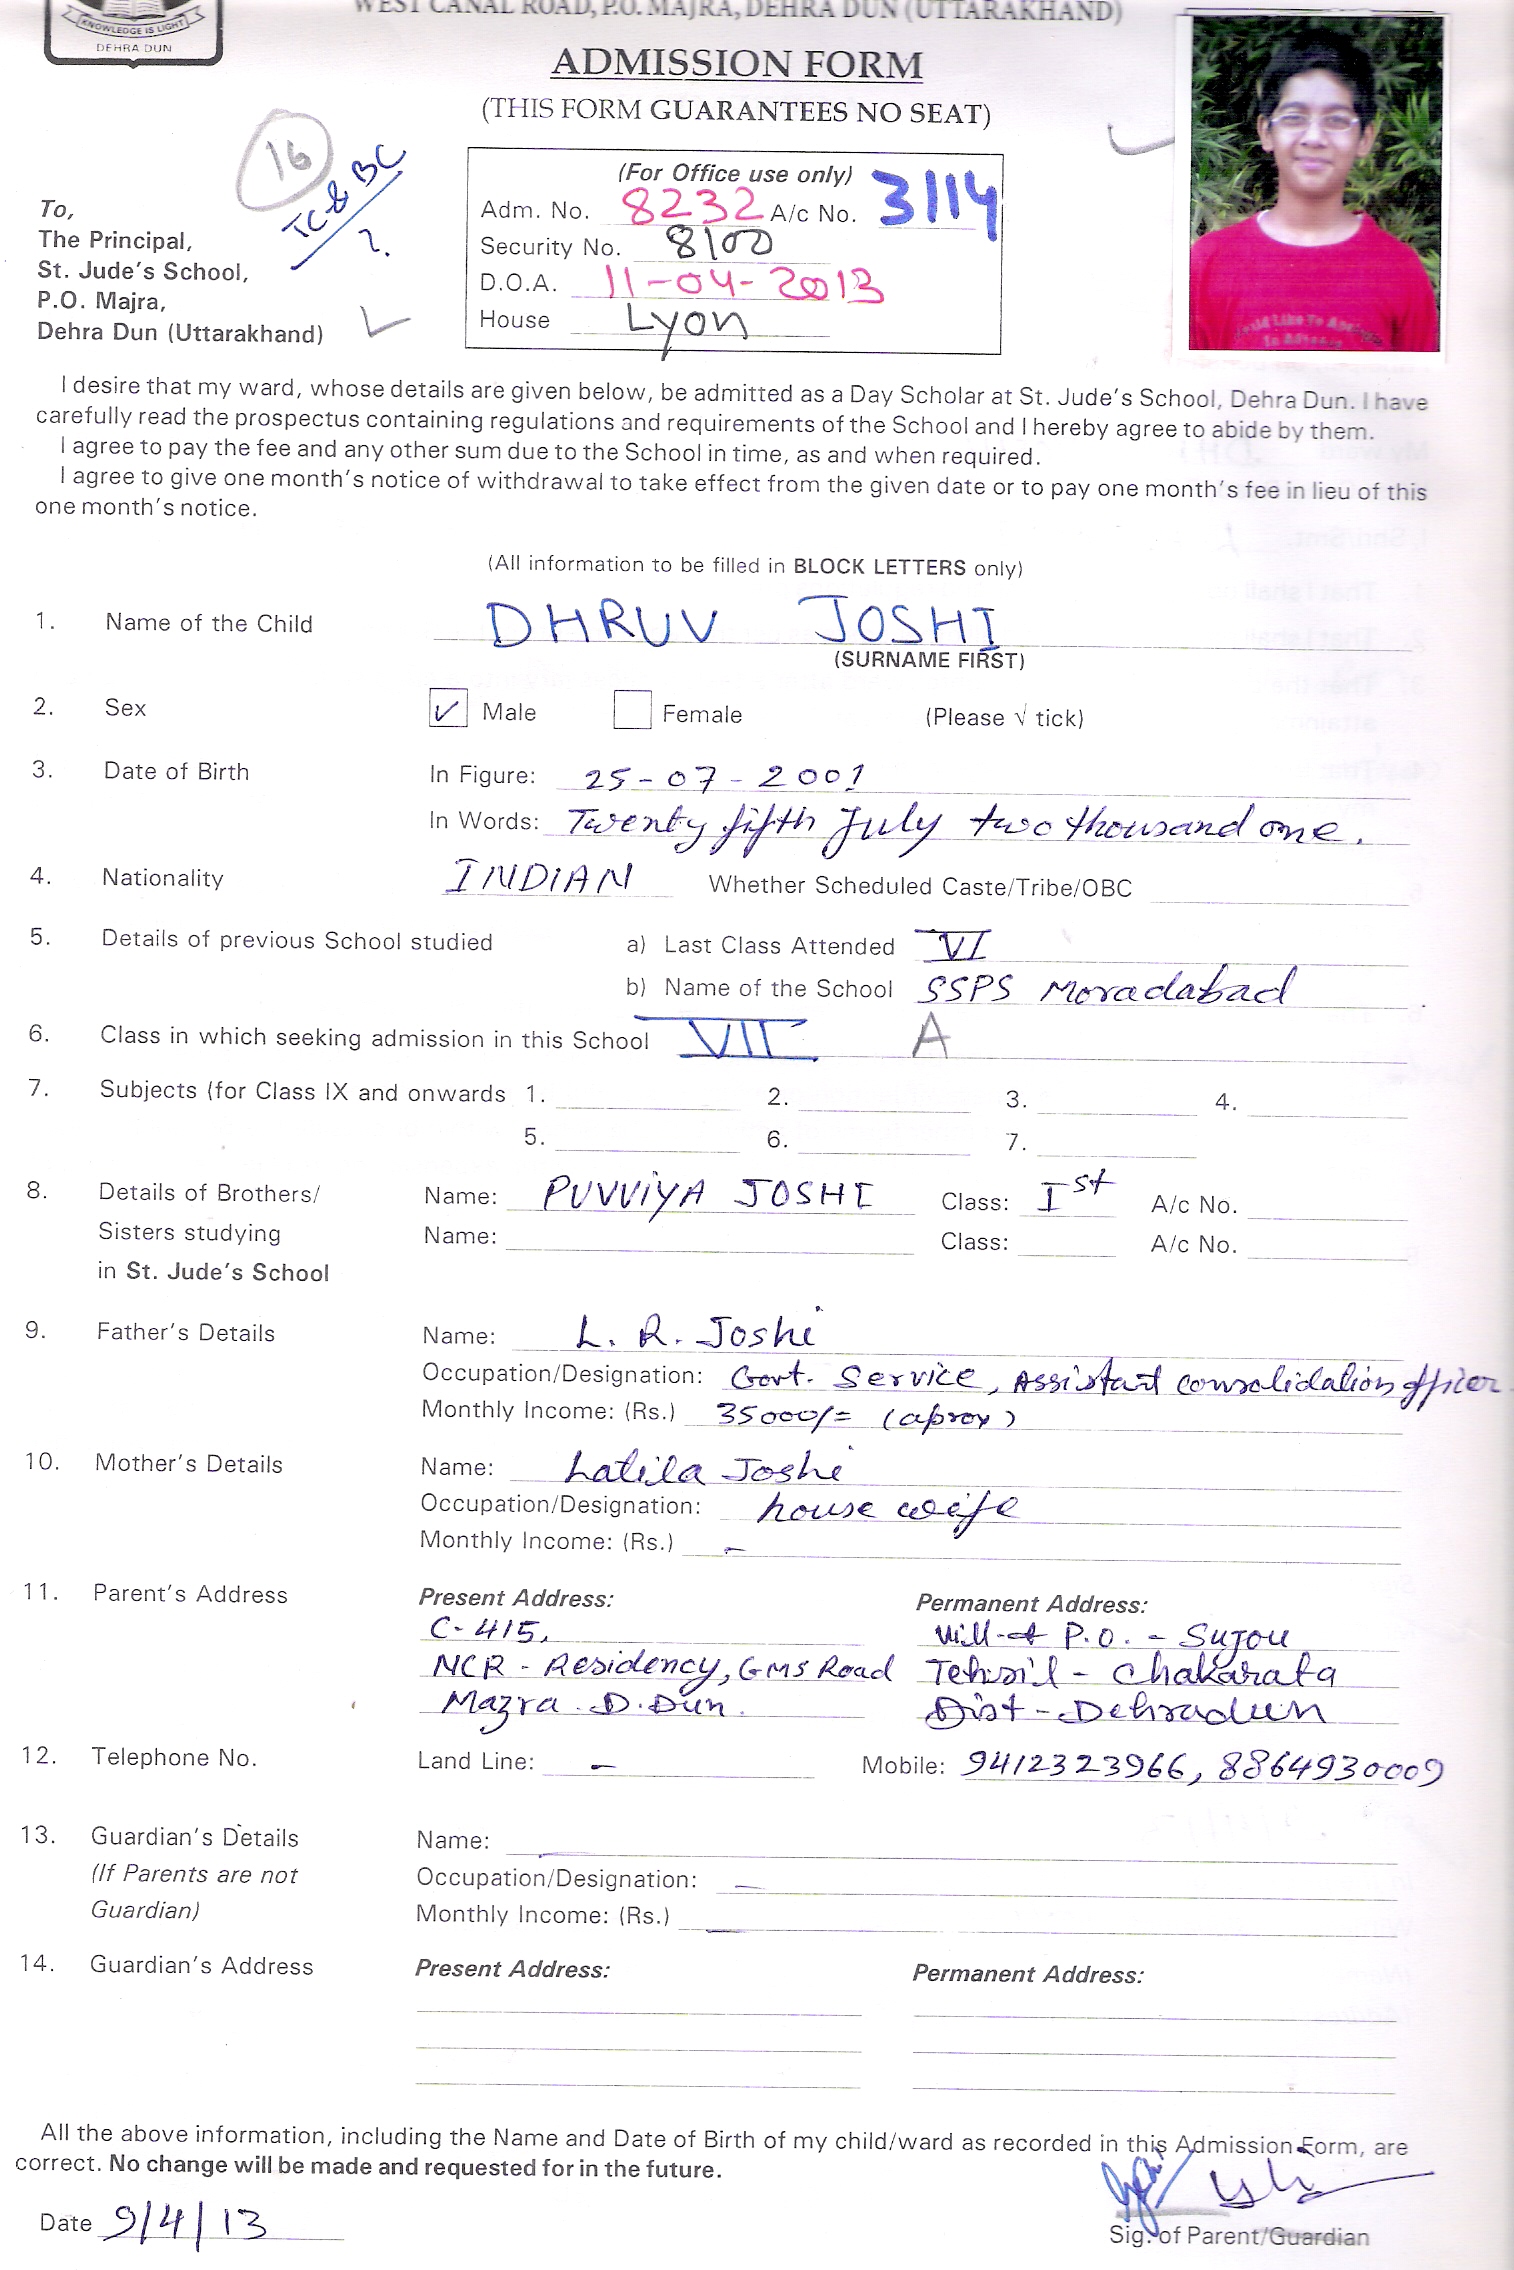 WEST CANAL ROAD, P.O. MAJRA, DEHRA DUN (UTTARAKHAND)
KNOWLEDGE IS LIGHT
DEHRA DUN
ADMISSION FORM
(THIS FORM GUARANTEES NO SEAT)
16
TC & BC
?
(For Office use only)
Adm. No. 8232 A/c No. 3114
Security No. 8100
D.O.A. 11-04-2013
House Lyon
To,
The Principal,
St. Jude's School,
P.O. Majra,
Dehra Dun (Uttarakhand)
I desire that my ward, whose details are given below, be admitted as a Day Scholar at St. Jude's School, Dehra Dun. I have
carefully read the prospectus containing regulations and requirements of the School and I hereby agree to abide by them.
I agree to pay the fee and any other sum due to the School in time, as and when required.
I agree to give one month's notice of withdrawal to take effect from the given date or to pay one month's fee in lieu of this
one month's notice.
(All information to be filled in BLOCK LETTERS only)
1. Name of the Child DHRUV JOSHI
(SURNAME FIRST)
2. Sex ✓ Male Female (Please √ tick)
3. Date of Birth In Figure: 25-07-2001
In Words: Twenty fifth July two thousand one.
4. Nationality INDIAN Whether Scheduled Caste/Tribe/OBC
5. Details of previous School studied a) Last Class Attended VI
b) Name of the School SSPS Moradabad
6. Class in which seeking admission in this School VII A
7. Subjects (for Class IX and onwards 1. 2. 3. 4.
5. 6. 7.
8. Details of Brothers/ Name: PUVVIYA JOSHI Class: Ist A/c No.
Sisters studying Name: Class: A/c No.
in St. Jude's School
9. Father's Details Name: L. R. Joshi
Occupation/Designation: Govt. Service, Assistant consolidation officer
Monthly Income: (Rs.) 35000/= (aprox)
10. Mother's Details Name: Lalila Joshi
Occupation/Designation: house wife
Monthly Income: (Rs.) -
11. Parent's Address Present Address: Permanent Address:
C-415, Vill-& P.O. - Sujou
NCR - Residency, GMS Road Tehsil - Chakarata
Mazra. D. Dun. Dist - Dehradun
12. Telephone No. Land Line: - Mobile: 9412323966, 8864930009
13. Guardian's Details Name: -
(If Parents are not Occupation/Designation: -
Guardian) Monthly Income: (Rs.) -
14. Guardian's Address Present Address: Permanent Address:
All the above information, including the Name and Date of Birth of my child/ward as recorded in this Admission Form, are
correct. No change will be made and requested for in the future.
Date 9/4/13
Sig. of Parent/Guardian